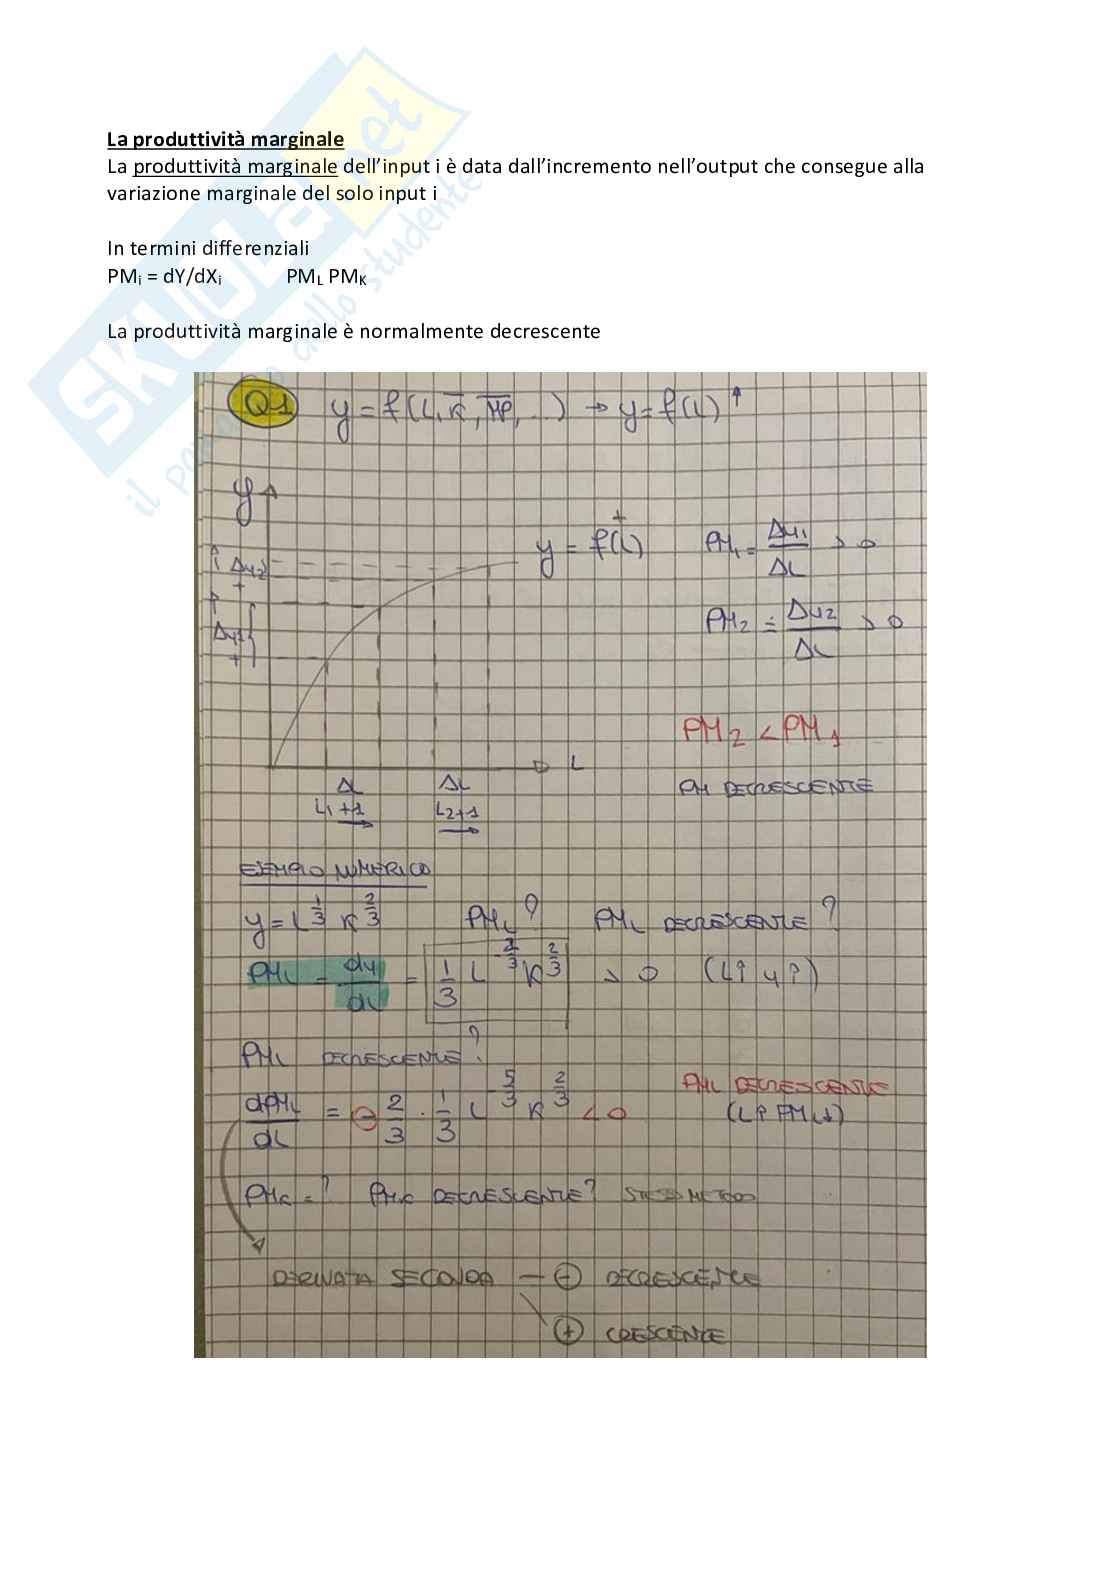 La produttività marginale
La produttività marginale dell'input i è data dall'incremento nell'output che consegue alla
variazione marginale del solo input i
In termini differenziali
PMi = dY/dXi PML PMK
La produttività marginale è normalmente decrescente
SKUOLA.net
il paradiso dello studente
Q1 y = f(L, K̅, M̅P̅, ...) → y = f(L) ↑
y
+
y = f(L) PM1 = Δy1/ΔL > 0
Δy2
+
PM2 = Δy2/ΔL > 0
Δy1
+
PM2 < PM1
L
ΔL ΔL PM DECRESCENTE
L1+1 L2+1
ESEMPIO NUMERICO
y = L^1/3 K^2/3 PML? PML DECRESCENTE?
PML = dy/dL = 1/3 L^-2/3 K^2/3 > 0 (L↑ y↑)
PML DECRESCENTE?
dPML/dL = - 2/3 · 1/3 L^-5/3 K^2/3 < 0 PML DECRESCENTE
(L↑ PML↓)
PMK = ? PMK DECRESCENTE? STESSO METODO
DERIVATA SECONDA - ⊖ DECRESCENTE
⊕ CRESCENTE